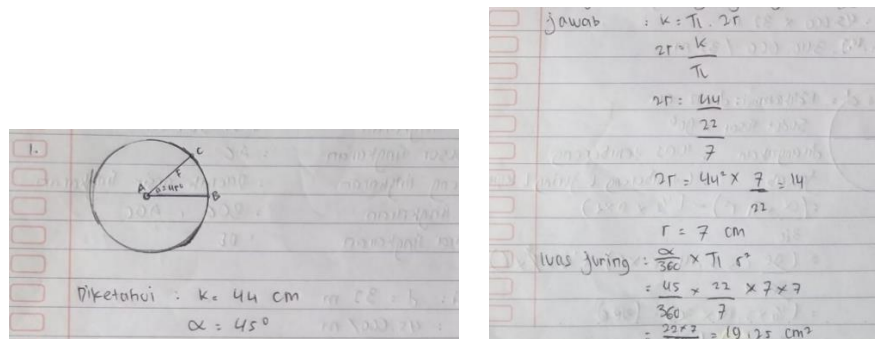 1.
C
r
A
α = 45°
B
Diketahui : k = 44 cm
α = 45°
jawab : k = π . 2r
2r = k / π
2r = 44 / 22 / 7
2r = 44² × 7 / 22 = 14
r = 7 cm
luas juring : α / 360 × π r²
= 45 / 360 × 22 / 7 × 7 × 7
= 22 × 7 = 19,25 cm²